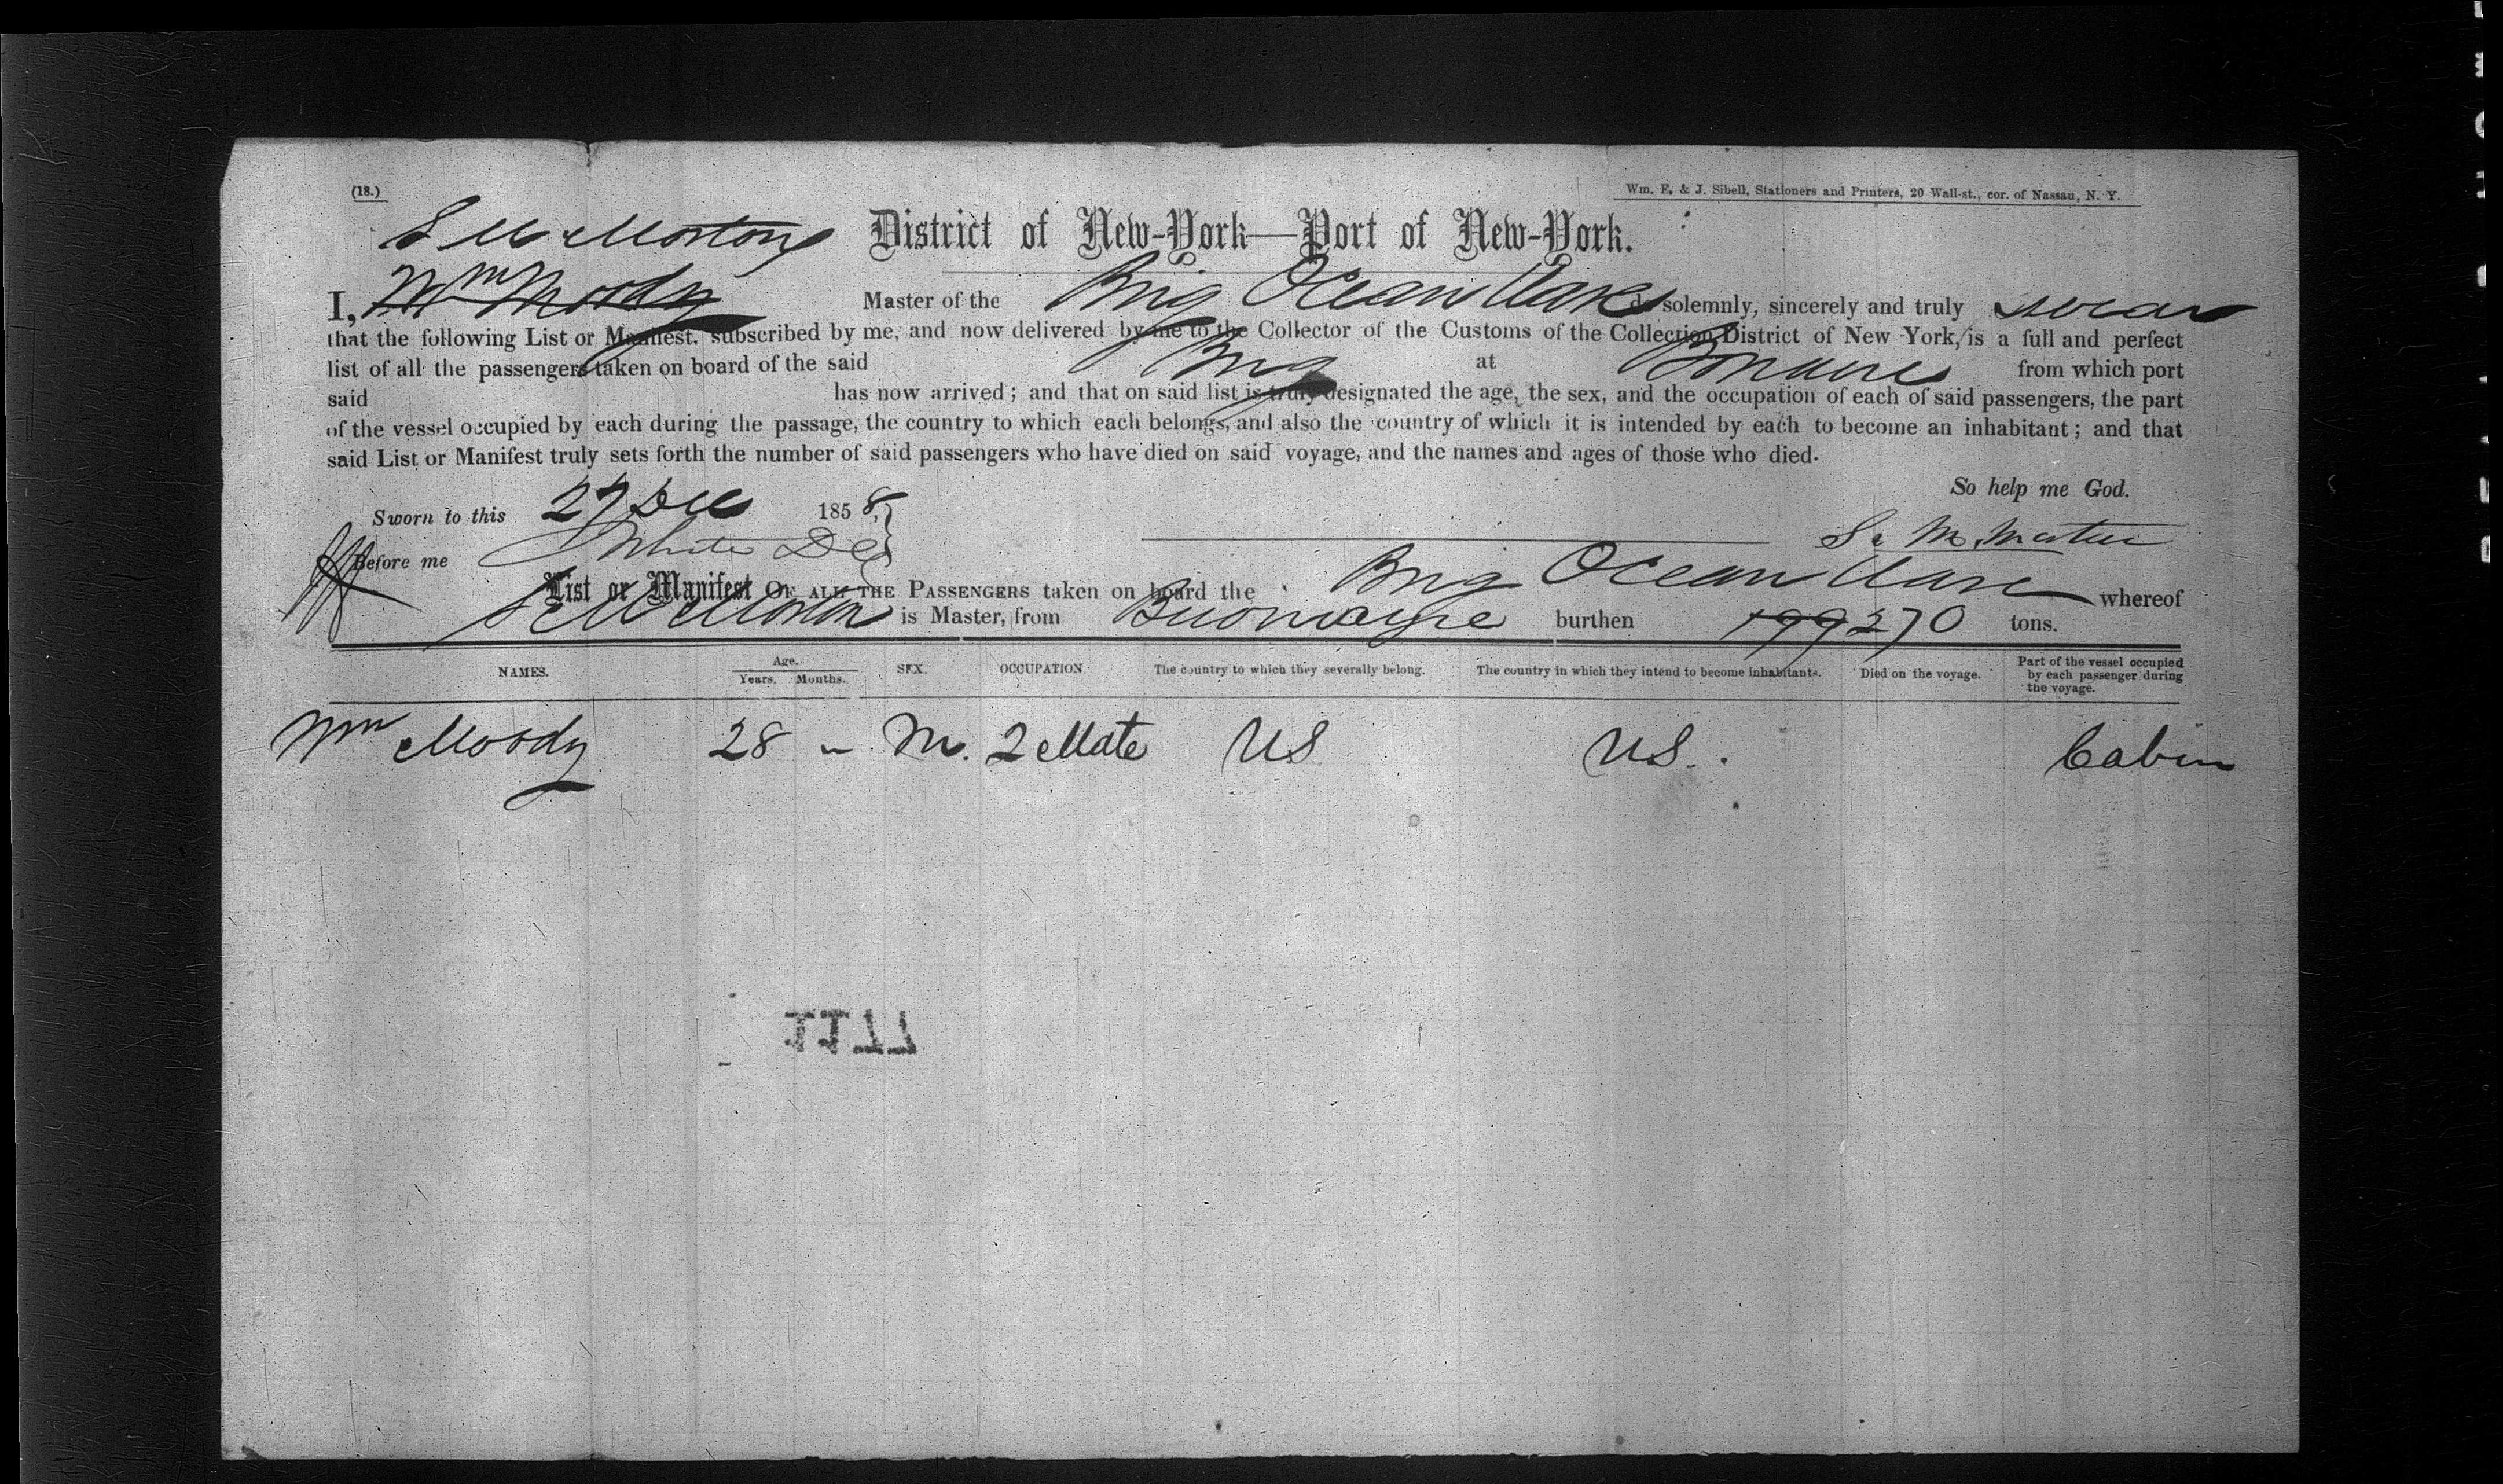 (18.)
Wm. E. & J. Sibell, Stationers and Printers, 20 Wall-st., cor. of Nassau, N. Y.
S M Morton District of New-York—Port of New-York.
I, Wm Moody Master of the Brig Ocean Wave do solemnly, sincerely and truly swear
that the following List or Manifest, subscribed by me, and now delivered by me to the Collector of the Customs of the Collection District of New York, is a full and perfect
list of all the passengers taken on board of the said Brig at Bonaire from which port
said has now arrived; and that on said list is truly designated the age, the sex, and the occupation of each of said passengers, the part
of the vessel occupied by each during the passage, the country to which each belongs, and also the country of which it is intended by each to become an inhabitant; and that
said List or Manifest truly sets forth the number of said passengers who have died on said voyage, and the names and ages of those who died.
So help me God.
Sworn to this 27 Dec 1858,
Before me White
List or Manifest OF ALL THE PASSENGERS taken on board the Brig Ocean Wave whereof
Morton is Master, from burthen 199 270 tons.
NAMES. Age. Years. Months. SEX. OCCUPATION. The country to which they severally belong. The country in which they intend to become inhabitants. Died on the voyage. Part of the vessel occupied by each passenger during the voyage.
Wm Moody 28 – M. 2 Mate US US. Cabin
1177